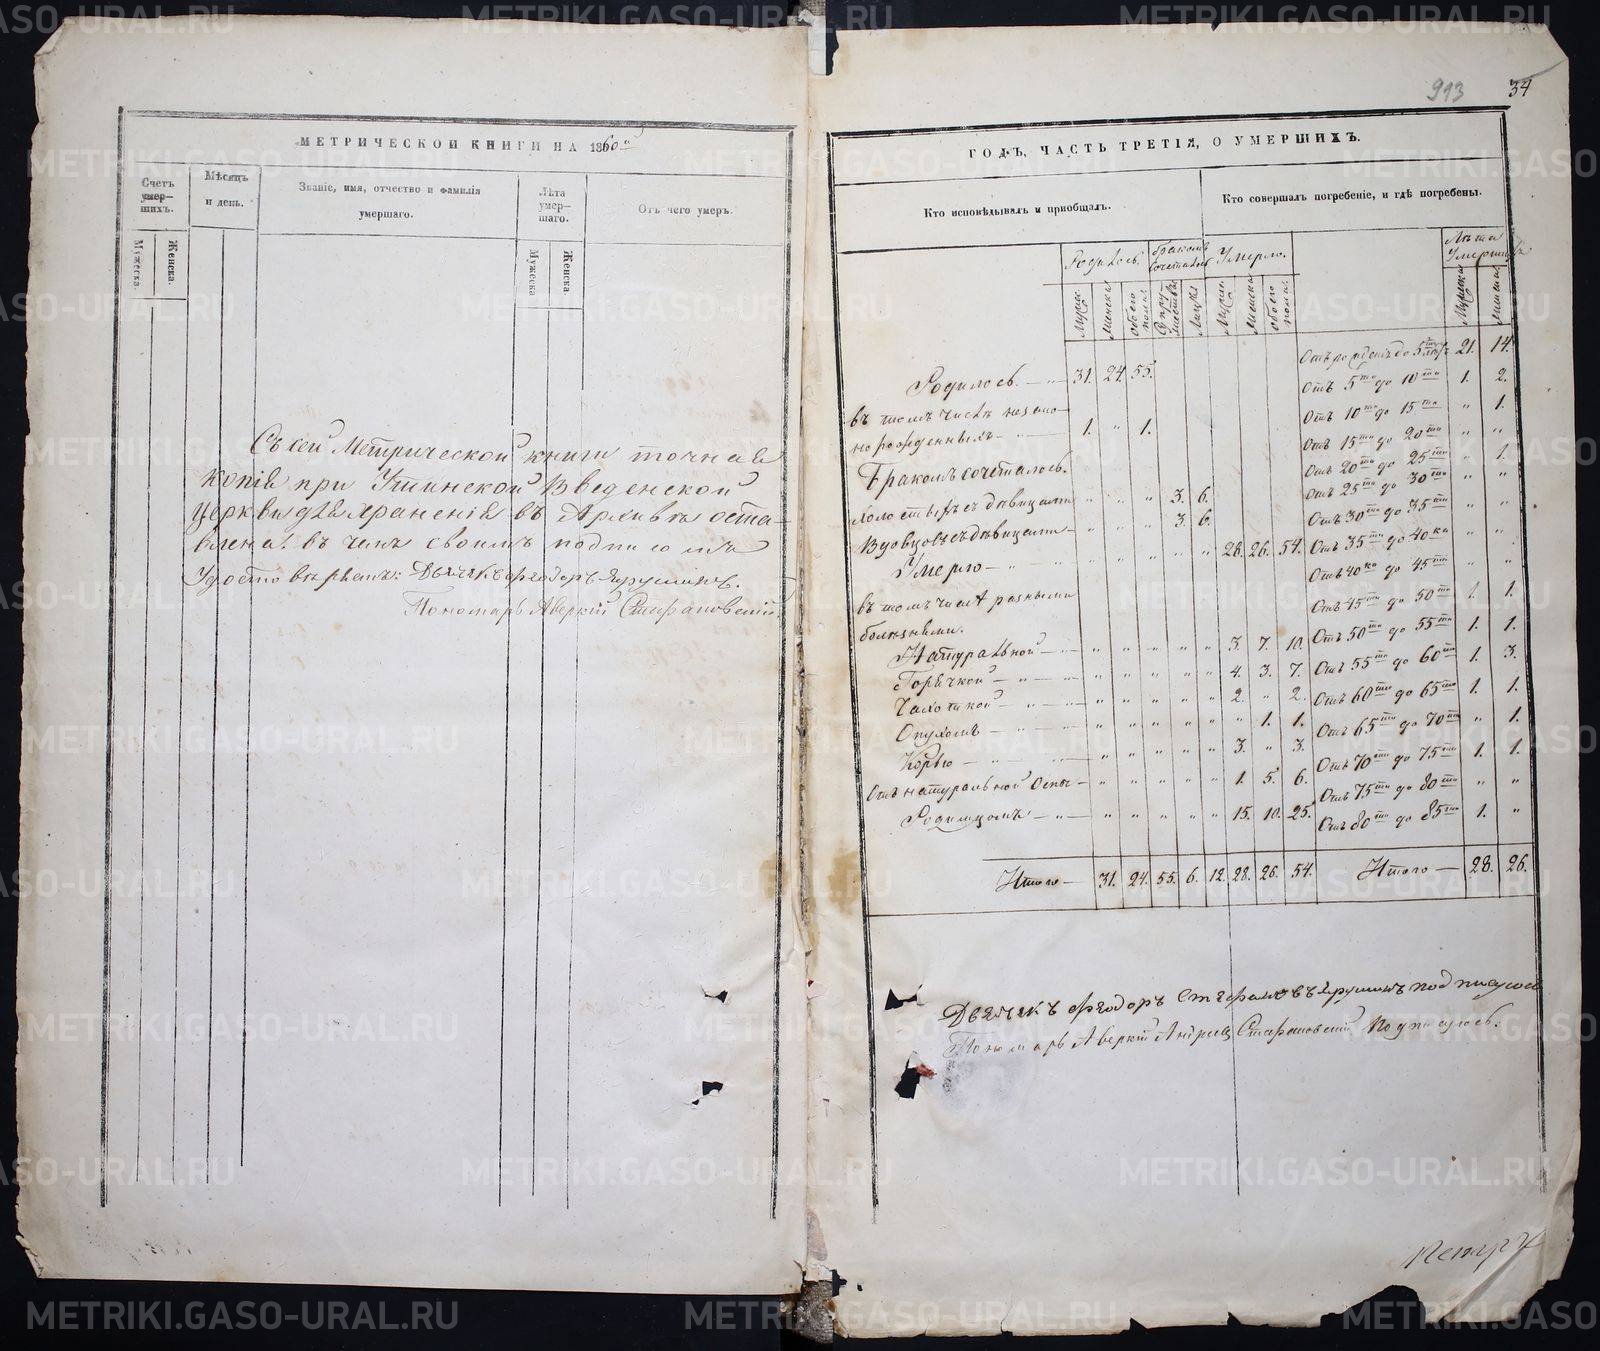 913
34
МЕТРИЧЕСКОЙ КНИГИ НА 1860й
Счетъ умер-шихъ.
Мѣсяцъ и день.
Званіе, имя, отчество и фамилія умершаго.
Лѣта умер-шаго.
Отъ чего умеръ.
Мужеска.
Женска.
Мужеска
Женска.
Съ сей Метрической книги точная
копія при Уткинской Введенской
Церкви для храненія въ Архивѣ оста-
влена въ чемъ своимъ подписомъ
Удостовѣряемъ: Дьячекъ Ѳеодоръ Ярушинъ.
Пономарь Аверкій Стефановскій
ГОДЪ, ЧАСТЬ ТРЕТІЯ, О УМЕРШИХЪ.
Кто исповѣдывалъ и пріобщалъ.
Кто совершалъ погребеніе, и гдѣ погребены.
Родилось. Бракомъ сочеталось Умерло. Лѣта Умершихъ
Мужес. Женска Обоего пола Супружествъ Лицъ Мужес. Женска Обоего пола. Мужска Женска
Родилось 31. 24. 55.
въ томъ числѣ незако-
норожденныхъ 1. " 1.
Бракомъ сочеталось.
холостыхъ съ дѣвицами " " " 3. 6.
Вдовцовъ съ дѣвицами " " " 3. 6.
Умерло " " " " " 28. 26. 54.
въ томъ числѣ разными
болѣзнями.
Натуральной " " " " " 3. 7. 10.
Горячкой " " " " " 4. 3. 7.
Чахоткой " " " " " 2. " 2.
Опухомъ " " " " " " 1. 1.
Корью " " " " " 3. " 3.
Отъ натуральной Оспы " " " " " 1. 5. 6.
Родимцомъ " " " " " 15. 10. 25.
Итого 31. 24. 55. 6. 12. 28. 26. 54.
Отъ рожденія до 5ти лѣтъ 21. 14.
Отъ 5ти до 10ти 1. 2.
Отъ 10ти до 15ти " 1.
Отъ 15ти до 20ти " "
Отъ 20ти до 25ти " 1.
Отъ 25ти до 30ти " "
Отъ 30ти до 35ти " "
Отъ 35ти до 40ка " "
Отъ 40ка до 45ти " "
Отъ 45ти до 50ти 1. 1.
Отъ 50ти до 55ти 1. 1.
Отъ 55ти до 60ти 1. 3.
Отъ 60ти до 65ти 1. 1.
Отъ 65ти до 70ти " 1.
Отъ 70ти до 75ти 1. 1.
Отъ 75ти до 80ти " "
Отъ 80ти до 85ти 1. "
Итого 28. 26.
Дьячекъ Ѳеодоръ Стефановъ Ярушинъ подписуюсь
Пономарь Аверкій Стефановскій Подписуюсь.
METRIKI.GASO-URAL.RU